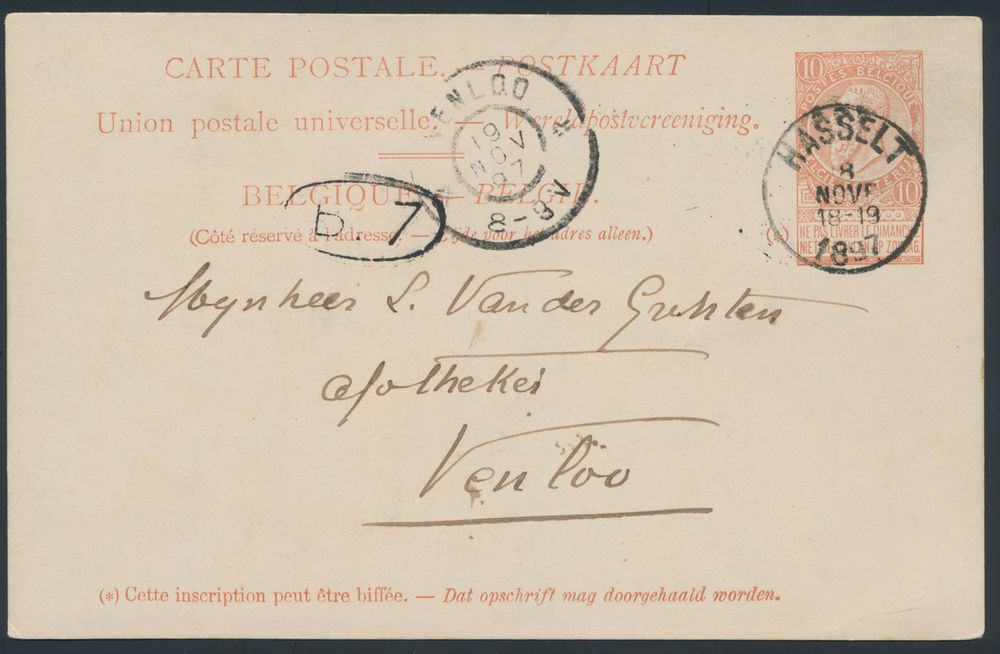 CARTE POSTALE. — POSTKAART
Union postale universelle. — Wereldpostvereeniging.
BELGIQUE — BELGIË.
(Côté réservé à l'adresse. — Zijde voor het adres alleen.)
(*)
10 10
POSTES BELGIQUE
NE PAS LIVRER LE DIMANCHE
NIET BESTELLEN OP ZONDAG
HASSELT
8
NOVE
18-19
1897
VENLOO
19
NOV
97
8-9V
b.7
Mynheer L. Van der Grinten
apotheker
Venloo
(*) Cette inscription peut être biffée. — Dat opschrift mag doorgehaald worden.